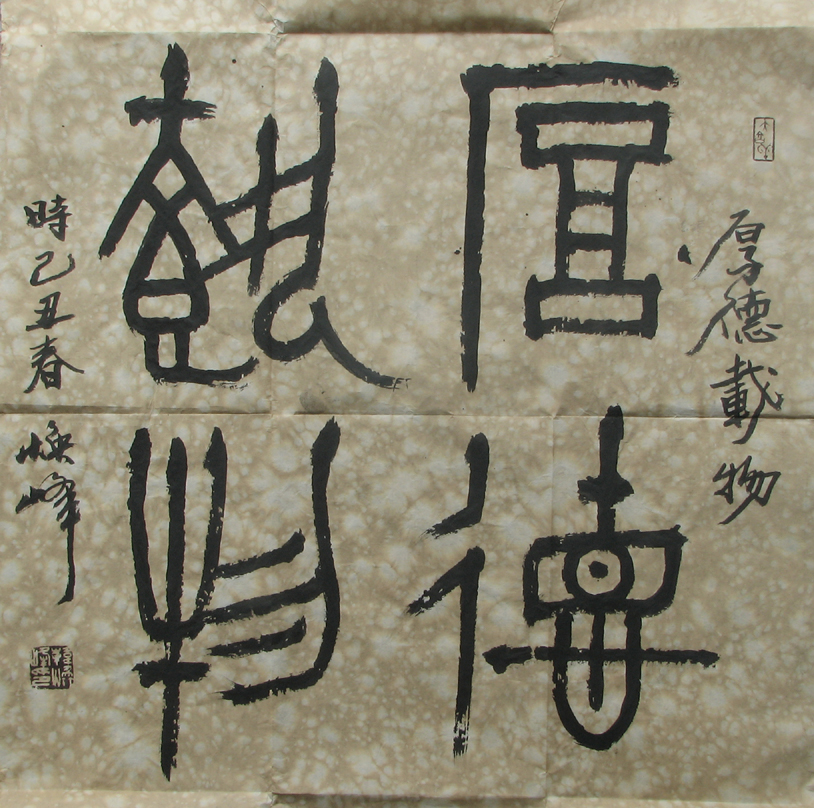 厚德
載物
厚德載物
時己丑春
煥峰